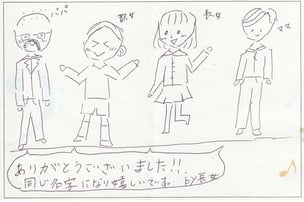 パパ
長女
ママ
ありがとうございました!!
同じ名字になり嬉しいです。 by長女